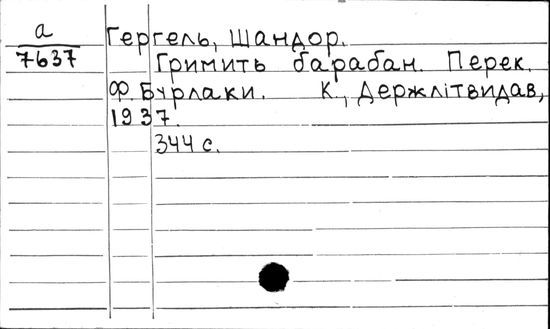 а
7637
Гергель, Шандор.
Гримить барабан. Перек.
Ф. Бурлаки. К., Держлітвидав,
1937.
344 с.